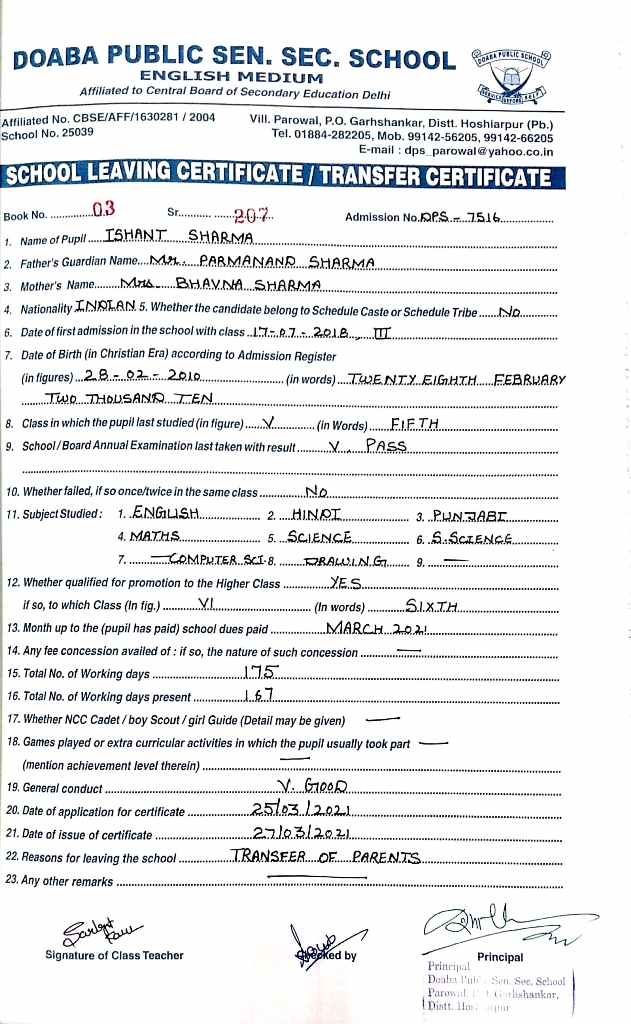 DOABA PUBLIC SEN. SEC. SCHOOL
ENGLISH MEDIUM
Affiliated to Central Board of Secondary Education Delhi
DOABA PUBLIC SCHOOL
Affiliated No. CBSE/AFF/1630281 / 2004
School No. 25039
Vill. Parowal, P.O. Garhshankar, Distt. Hoshiarpur (Pb.)
Tel. 01884-282205, Mob. 99142-56205, 99142-66205
E-mail : dps_parowal@yahoo.co.in
SCHOOL LEAVING CERTIFICATE / TRANSFER CERTIFICATE
Book No. 03 Sr. 207 Admission No. DPS - 7516
1. Name of Pupil ISHANT SHARMA
2. Father's Guardian Name Mr. PARMANAND SHARMA
3. Mother's Name Mrs BHAVNA SHARMA
4. Nationality INDIAN 5. Whether the candidate belong to Schedule Caste or Schedule Tribe No
6. Date of first admission in the school with class 17-07-2018, III
7. Date of Birth (in Christian Era) according to Admission Register
(in figures) 28-02-2010 (in words) TWENTY EIGHTH FEBRUARY
TWO THOUSAND TEN
8. Class in which the pupil last studied (in figure) V (in Words) FIFTH
9. School / Board Annual Examination last taken with result V, PASS
10. Whether failed, if so once/twice in the same class No
11. Subject Studied : 1. ENGLISH 2. HINDI 3. PUNJABI
4. MATHS 5. SCIENCE 6. S.SCIENCE
7. COMPUTER SCI. 8. DRAWING 9. —
12. Whether qualified for promotion to the Higher Class YES
if so, to which Class (In fig.) VI (In words) SIXTH
13. Month up to the (pupil has paid) school dues paid MARCH 2021
14. Any fee concession availed of : if so, the nature of such concession —
15. Total No. of Working days 175
16. Total No. of Working days present 167
17. Whether NCC Cadet / boy Scout / girl Guide (Detail may be given) —
18. Games played or extra curricular activities in which the pupil usually took part —
(mention achievement level therein) —
19. General conduct V. GOOD
20. Date of application for certificate 25/03/2021
21. Date of issue of certificate 27/03/2021
22. Reasons for leaving the school TRANSFER OF PARENTS
23. Any other remarks —
Signature of Class Teacher
Checked by
Principal
Principal
Doaba Publ Sen. Sec. School
Parowal, Garhshankar,
Distt.